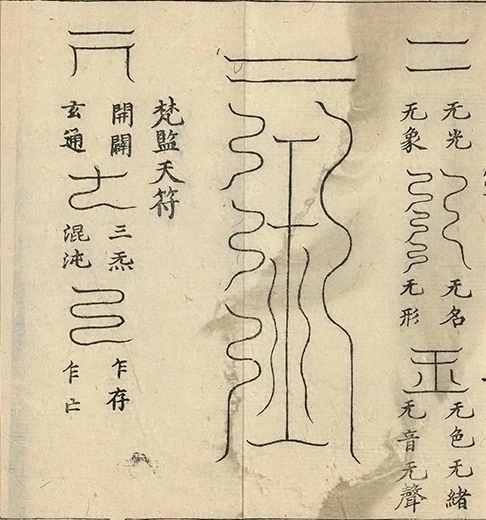 无光
无象
无名
无形
无色无緒
无音无聲
梵監天符
開闢
玄通
三炁
混沌
乍存
乍亡